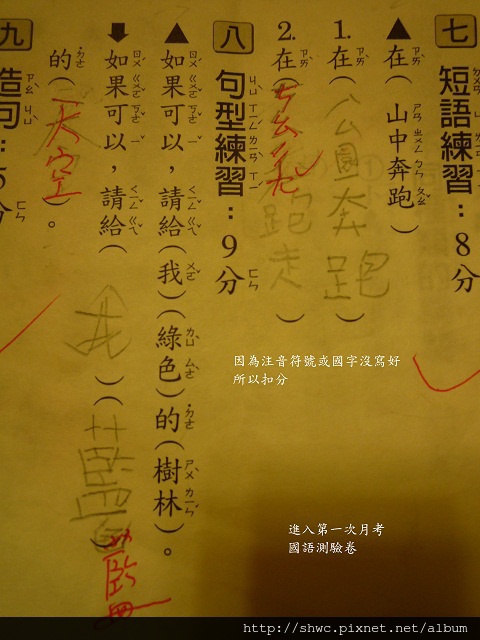 七 短語練習：8分
▲在（山中奔跑）
1.在（公園奔跑）
2.在（跑走）
八 句型練習：9分
▲如果可以，請給（我）（綠色）的（樹林）。
⬇如果可以，請給（我）（藍
的（天空）。
藍
九 造句：5分
因為注音符號或國字沒寫好
所以扣分
進入第一次月考
國語測驗卷
http://shwc.pixnet.net/album